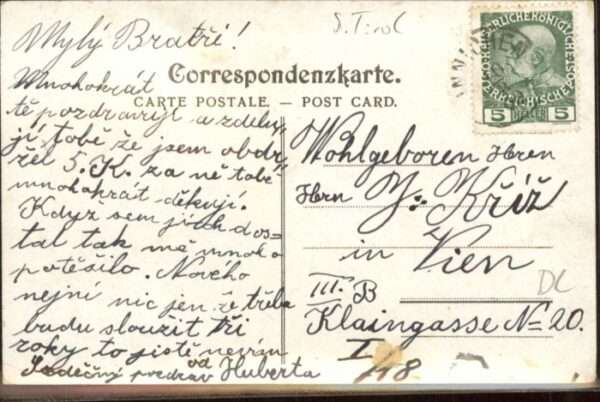 Mylý Bratří!
S. Tirol
Correspondenzkarte.
CARTE POSTALE. — POST CARD.
Mnohokrát
tě pozdravuji a zdělu
jí tobě že jsem obdr
žel 5. K. za ně tobě
mnohkrát děkuji.
Kdyz sem jich dos=
tal tak mě mnoho
potěšilo. Nového
nejní nic jen že třeba
budu slouzit tři
roky to jistě nevím
Srdečný pozdrav od Huberta
Wohlgeboren Herrn
Herrn J. Kříž
in Wien
III. B
Klaingasse № 20.
I
5 HELLER 5
DL